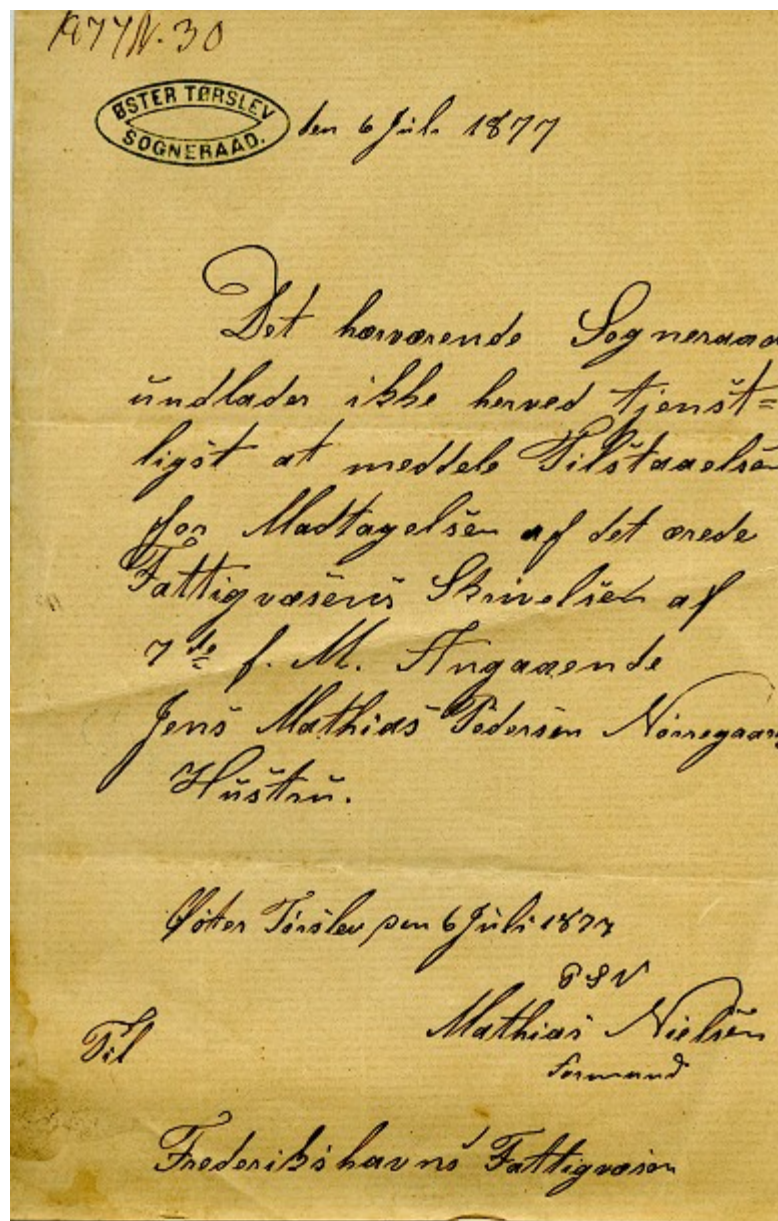 1877 N. 30
ØSTER TØRSLEV
SOGNERAAD.
den 6 Juli 1877
Det herværende Sogneraad
undlader ikke herved tjenst=
ligst at meddele Tilstaaelse
for Modtagelsen af det ærede
Fattigvæsens Skrivelse af
7de f. M. Angaaende
Jens Mathias Pedersen Nørregaard
Hustru.
Øster Tørslev den 6 Juli 1877
P S V
Mathias Nielsen
Formand
Til
Frederikshavns Fattigvæsen